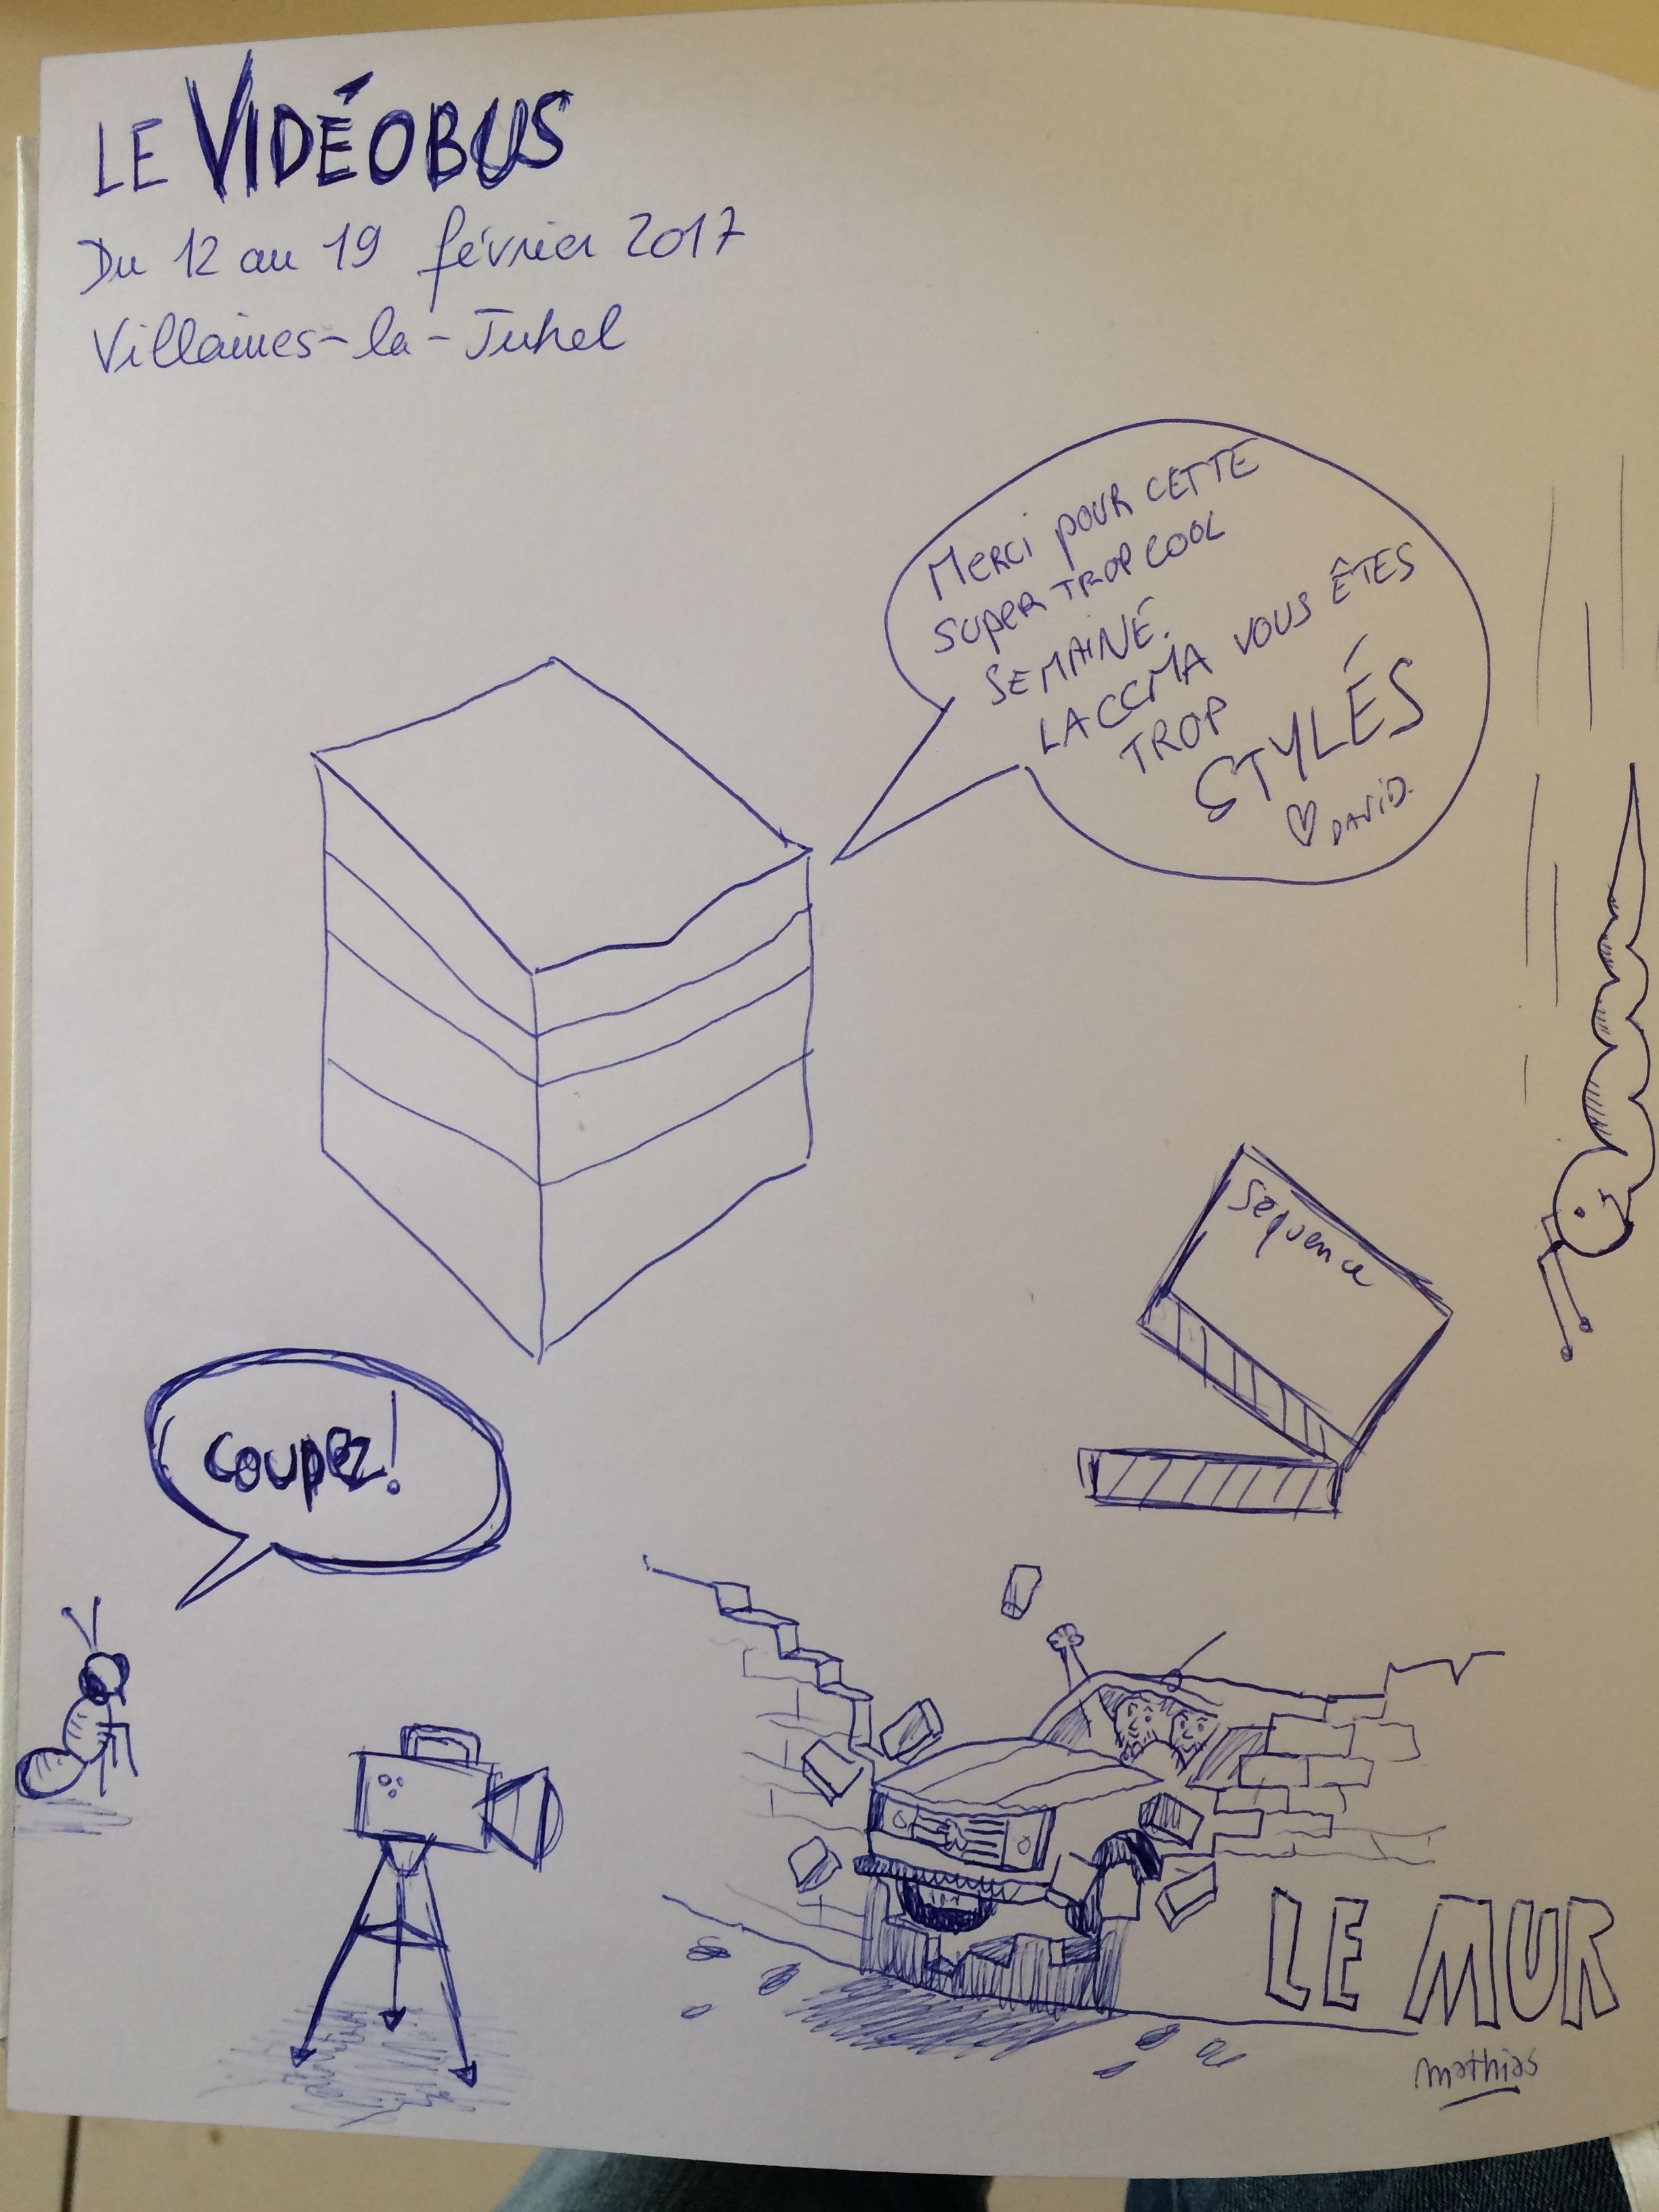 LE VIDÉOBUS
Du 12 au 19 février 2017
Villaines-la-Juhel
Merci pour CETTE
SUPER TROP COOL
SEMAINE.
LA CCMA VOUS ÊTES
TROP
STYLÉS
♡ DAVID.
Séquence
Coupez!
LE MUR
mathias